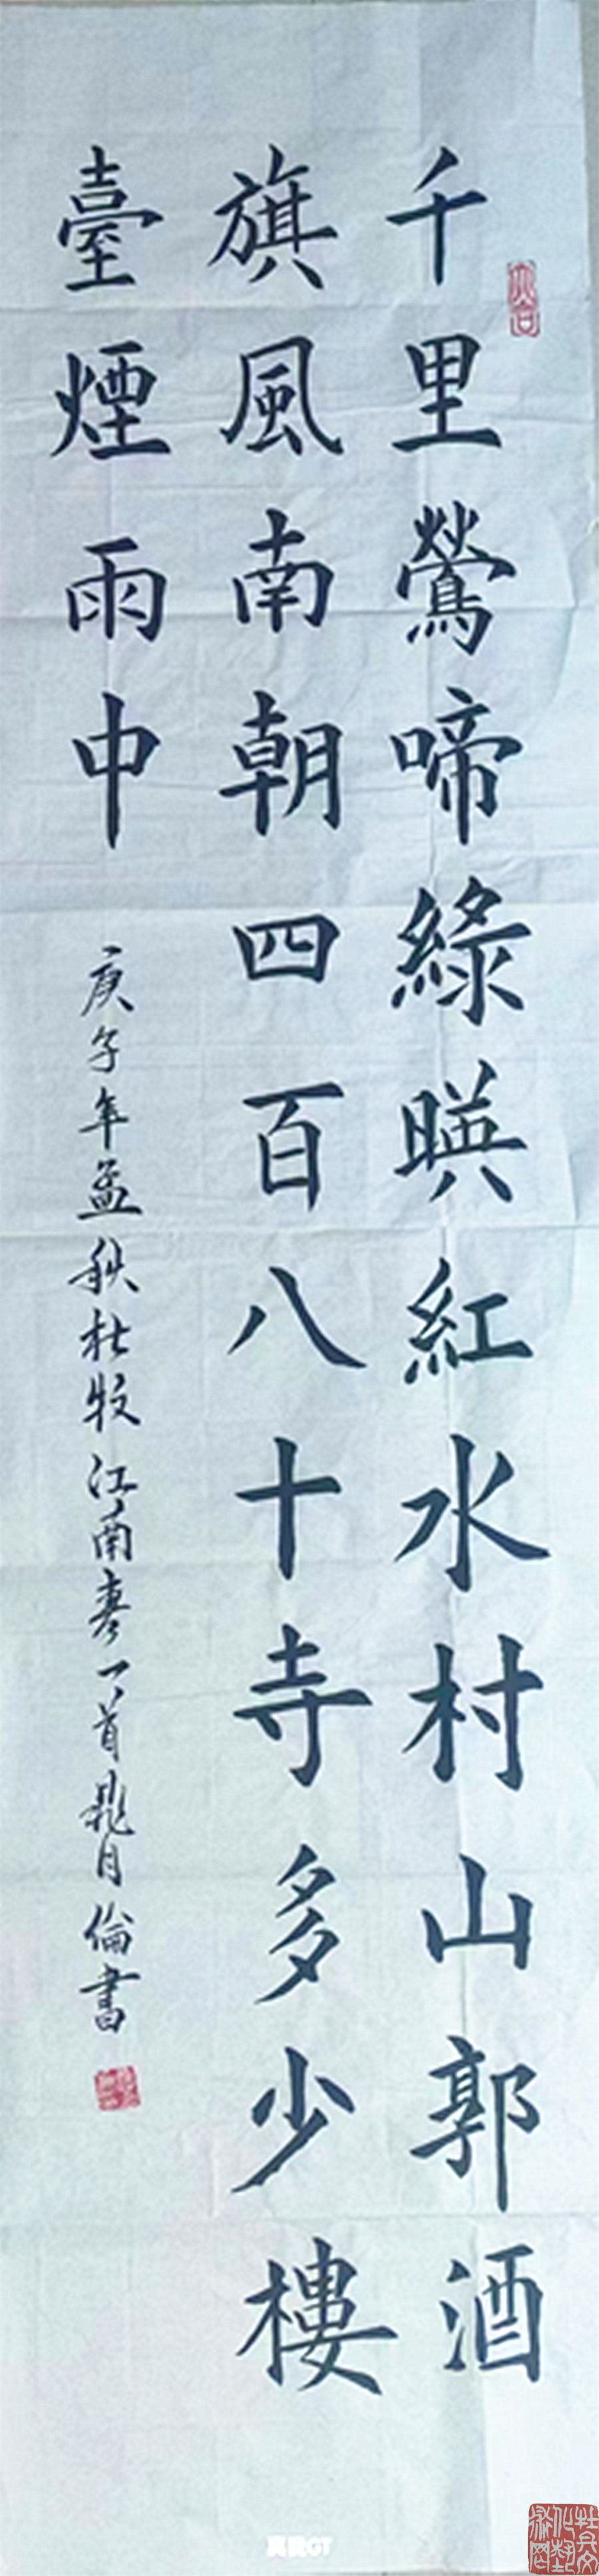 千里鶯啼綠暎紅水村山郭酒
旗風南朝四百八十寺多少樓
臺煙雨中
庚子年孟秋杜牧江南春一首晁月倫書